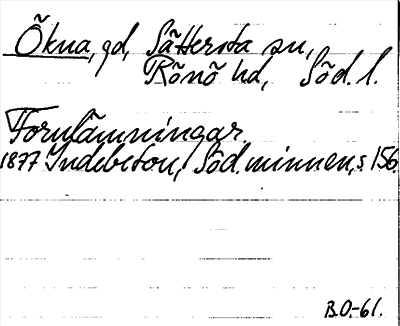 Ökna, gd, Sättersta sn,
Rönö hd, Söd. l.
Fornlämningar
1877 Indebetou, Söd. minnen, s 156.
B.O.-61.